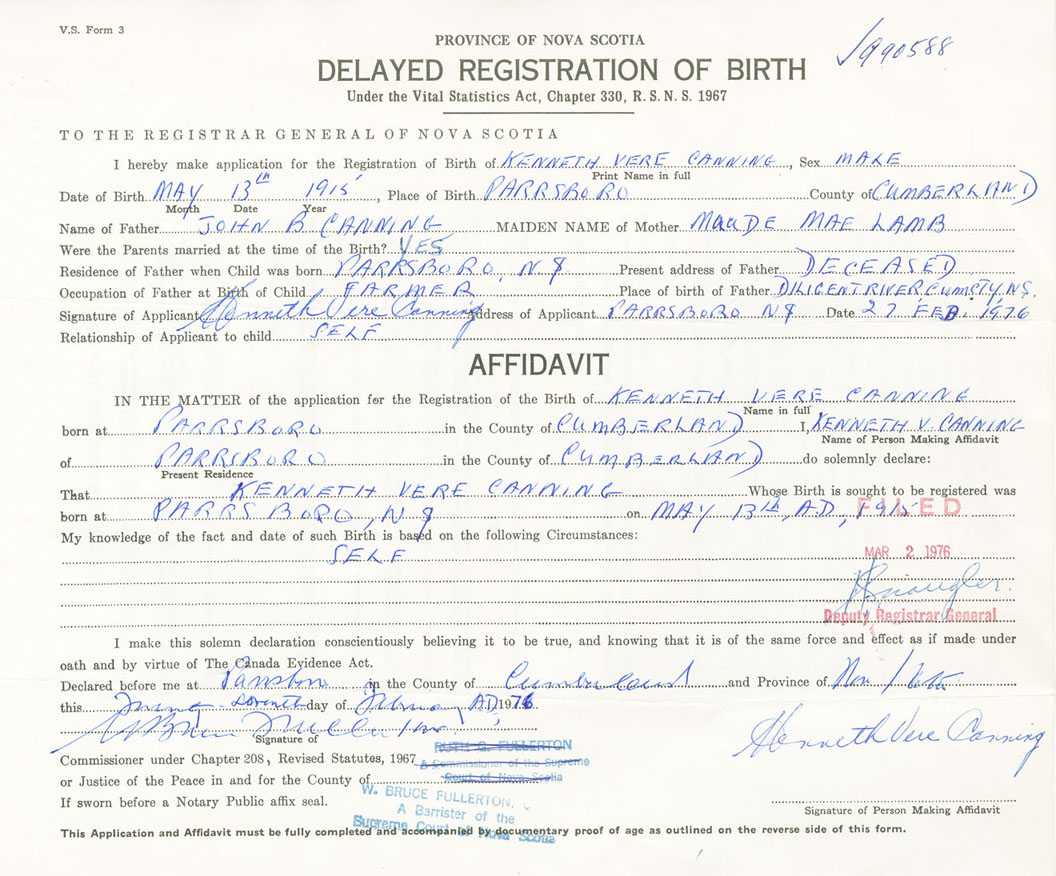 V.S. Form 3
PROVINCE OF NOVA SCOTIA
DELAYED REGISTRATION OF BIRTH
Under the Vital Statistics Act, Chapter 330, R. S. N. S. 1967
TO THE REGISTRAR GENERAL OF NOVA SCOTIA
I hereby make application for the Registration of Birth of KENNETH VERE CANNING, Sex MALE
Print Name in full
Date of Birth MAY 13th 1915, Place of Birth PARRSBORO County of CUMBERLAND
Month Date Year
Name of Father JOHN B CANNING MAIDEN NAME of Mother MAUDE MAE LAMB
Were the Parents married at the time of the Birth? YES
Residence of Father when Child was born PARRSBORO, NS Present address of Father DECEASED
Occupation of Father at Birth of Child FARMER Place of birth of Father DILIGENT RIVER N.S.
Signature of Applicant Kenneth Vere Canning Address of Applicant PARRSBORO NS Date 27 FEB. 1976
Relationship of Applicant to child SELF
AFFIDAVIT
IN THE MATTER of the application for the Registration of the Birth of KENNETH VERE CANNING
Name in full
born at PARRSBORO in the County of CUMBERLAND I, KENNETH V. CANNING
Name of Person Making Affidavit
of PARRSBORO in the County of CUMBERLAND do solemnly declare:
Present Residence
That KENNETH VERE CANNING Whose Birth is sought to be registered was
born at PARRSBORO, NS on MAY 13th, A.D., 1915
FILED
My knowledge of the fact and date of such Birth is based on the following Circumstances:
SELF
MAR 2 1976
Deputy Registrar General
I make this solemn declaration conscientiously believing it to be true, and knowing that it is of the same force and effect as if made under
oath and by virtue of The Canada Evidence Act.
Declared before me at Parrsboro in the County of Cumberland and Province of Nova Scotia
this day of AD 1976
Kenneth Vere Canning
Signature of
RUTH G. FULLERTON
Commissioner under Chapter 208, Revised Statutes, 1967
A Commissioner of the Supreme
Court of Nova Scotia
or Justice of the Peace in and for the County of
W. BRUCE FULLERTON,
If sworn before a Notary Public affix seal.
A Barrister of the
Supreme Court of Nova Scotia
Signature of Person Making Affidavit
This Application and Affidavit must be fully completed and accompanied by documentary proof of age as outlined on the reverse side of this form.